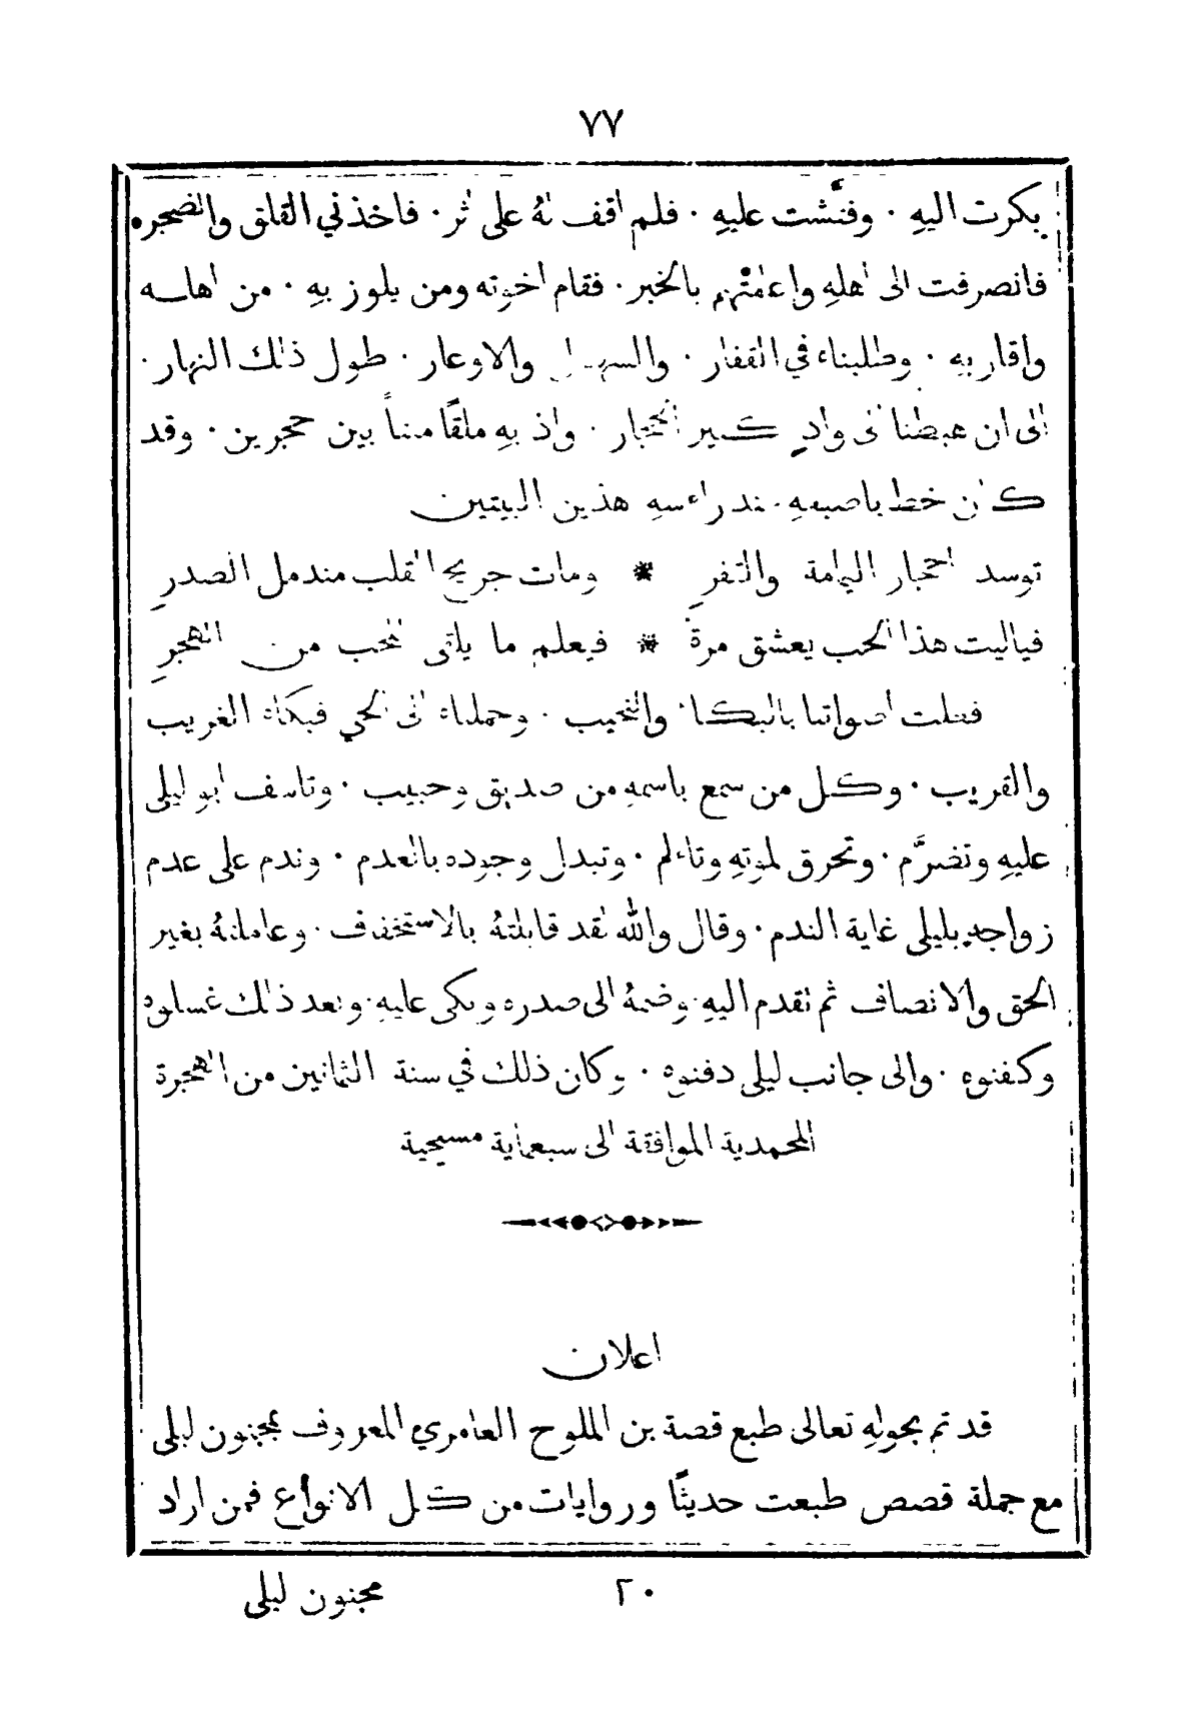 ٧٧
بكرت اليهِ ٠ وفتَّشت عليهِ ٠ فلم اقف لهُ على اثر ٠ فاخذني القلق والضجره
فانصرفت الى اهلهِ واعلمتهم بالخبر ٠ فقام اخوته ومن يلوز بهِ ٠ من اهلـه
واقاربهِ ٠ وطلبناء في القفار ٠ والسهـل والاوعار ٠ طول ذلك النهار ٠
الى ان هبطنا الى وادٍ كـثير الحجار ٠ واذ بهِ ملقًا ميتاً بين حجرين ٠ وقد
كان خط باصبعهِ عند راءسهِ هذين البيتين
توسد احجار اليمامة والقفرِ * ومات جريح القلب مندمل الصدرِ
فياليت هذا الحب يعشق مرةً * فيعلم ما يلقى المحب من الهجرِ
فعلت اصواتنا بالبكـا ٠ والنحيب ٠ وحملناه الى الحي فبكاه الغريب
والقريب ٠ وكـل من سمع باسمهِ من صديق وحبيب ٠ وتاسف ابو ليلى
عليهِ وتضرَّم ٠ وتحرق لموتهِ وتاءلم ٠ وتبدل وجوده بالعدم ٠ وندم على عدم
زواجهِ بليلى غاية الندم ٠ وقال والله لقد قابلتهُ بالاستخفاف ٠ وعاملتهُ بغير
الحق والانصاف ثم تقدم اليهِ وضمهُ الى صدره وبكى عليهِ ٠ وبعد ذلك غسلوه
وكفنوه ٠ والى جانب ليلى دفنوه ٠ وكان ذلك في سنة الثمانين من الهجرة
المحمدية الموافقة الى سبعماية مسيحية
اعلان
قد تم بحولهِ تعالى طبع قصة بن الملوح العامري المعروف بمجنون ليلى
مع جملة قصص طبعت حديثًا وروايات من كـل الانواع فمن اراد
٢٠
مجنون ليلى